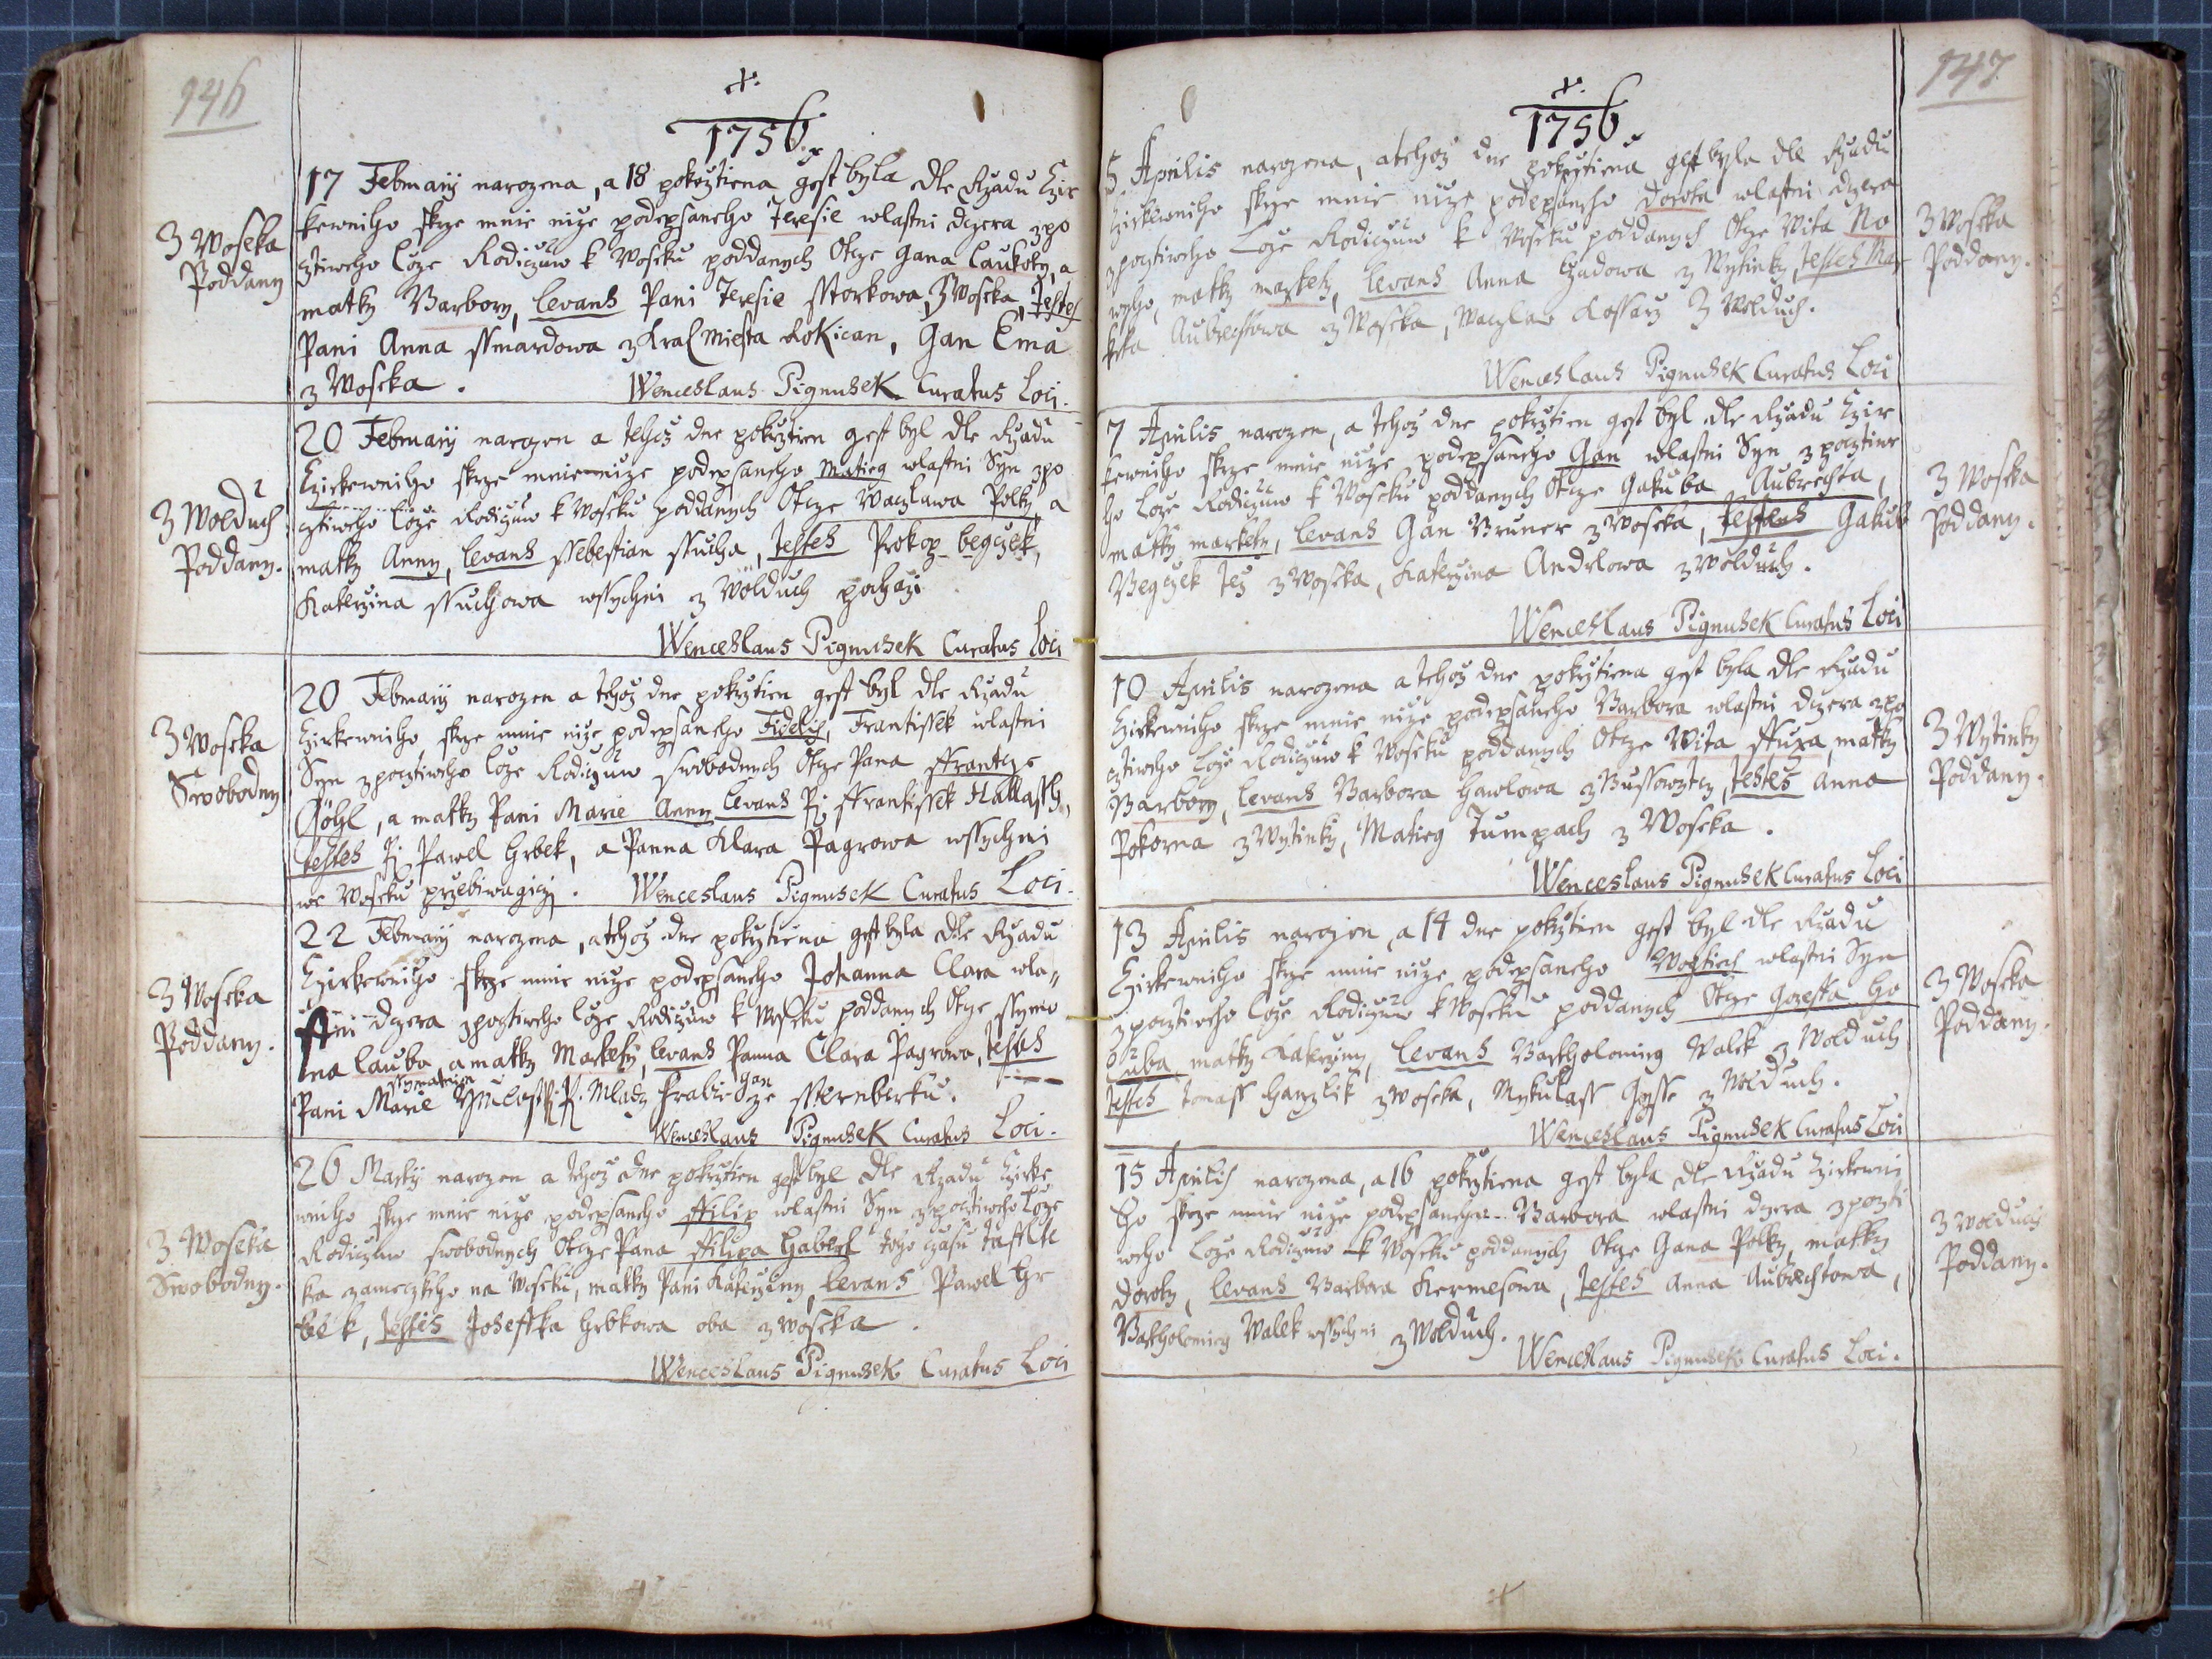 146
+.
1756.
17 Februarij narozena, a 18 pokrztiena gest byla dle Rzadu Czir
kewniho skrze mnie nize podepsaneho Teresie wlastni dczera zpo
cztiweho loze Rodiczuw k Woseku poddanych Otcze Gana Laukoty, a
matky Barbory, levans Pani Teresie Storkowa z Woseka, Testes
Pani Anna ssmardowa z Kral Miesta Rokican, Gan Ema
z Woseka. Wenceslaus Pigmusek Curatus Loci.
Z Woseka
Poddany
20 Februarij narozen a tehoz dne pokrztien gest byl dle Rzadu
Czirkewniho skrze mnie nize podepsaneho Matieg wlastni Syn zpo
cztiweho loze Rodiczuw k Woseku poddanych Otcze Waczlawa Polky, a
matky Anny, levans ssebestian ssucha, testes Prokop begczek,
Katerzina ssuchowa wssychni z Wolduch pochazi
Wenceslaus Pigmusek Curatus Loci
Z Wolduch
Poddany.
20 Februarij narozen a tehoz dne pokrztien gest byl dle Rzadu
Czirkewniho skrze mnie nize podepsaneho Fidelis, Frantissek wlastni
Syn zpocztiweho loze Rodiczuw swobodnych Otcze Pana ffrantze
Göhl, a matky Pani Marie Anny levans P: ffrantissek Hallasch,
testes P: Pawel Hrbek, a Panna Klara Pagrowa wssychni
we Woseku przebiwagiczy. Wenceslaus Pigmusek Curatus Loci.
Z Woseka
Swobodny
22 Februarij narozena, a tehoz dne pokrztiena gest byla dle Rzadu
Czirkewniho skrze mnie nize podepsaneho Johanna Clara wla„
stni dczera zpocztiweho loze Rodiczuw k Woseku poddanych Otcze ssymo
na lauba a matky Markety, levans Panna Clara Pagrowa, testes
Pani Marie P. Mlady Hrabie Gan ze ssternberku.
Wenceslaus Pigmusek Curatus Loci.
Z Woseka
Poddany.
26 Martij narozen a tehoz dne pokrztien gest byl dle Rzadu Czirke
wniho skrze mnie nize podepsaneho ffilip wlastni Syn zpocztiweho Loze
Rodiczuw swobodnych Otcze Pana ffilipa Haberl toho czasu Taffelde
kra zameczkeho na Woseku, matky Pani Katerziny, levans Pawel Hr
bek, testes Joseffka Hrbkowa oba z Woseka.
Wenceslaus Pigmusek Curatus Loci
Z Woseka
Swobodny.
147
+.
1756.
5 Aprilis narozena, a tehoz dne pokrztiena gest byla dle Rzadu
Czirkewniho skrze mnie nize podepsaneho Dorota wlastni dczera
zpocztiweho Loze Rodiczuw k Woseku poddanych Otcze Wita No
weho, matky Markety, levans Anna Czadowa z Wytinky, testes Mar
keta Aubrechtowa z Woseka, Waczlaw Kossarz z Wolduch.
Wenceslaus Pigmusek Curatus Loci
Z Woseka
Poddany.
7 Aprilis narozen, a tehoz dne pokrztien gest byl dle Rzadu Czir
kewniho skrze mnie nize podepsaneho Gan wlastni Syn zpocztiwe
ho Loze Rodiczuw k Woseku poddanych Otcze Gakuba Aubrechta,
matky Markety, levans Gan Bruner z Woseka, testes Gakub
Begczek tez z Woseka, Katerzina Andrlowa z Wolduch.
Wenceslaus Pigmusek Curatus Loci
Z Woseka
Poddany.
10 Aprilis narozena a tehoz dne pokrztiena gest byla dle Rzadu
Czirkewniho skrze mnie nize podepsaneho Barbora wlastni dczera zpo
cztiweho Loze Rodiczuw k Woseku poddanych Otcze Wita ffuxa, matky
Barbory, levans Barbora Hawlowa z Bussowicz, testes Anna
Pokorna z Wytinky, Matieg Tumpach z Woseka.
Wenceslaus Pigmusek Curatus Loci
Z Wytinky
Poddany.
13 Aprilis narozen, a 14 dne pokrztien gest byl dle Rzadu
Czirkewniho skrze mnie nize podepsaneho Wogtiech wlastni Syn
zpocztiweho loze Rodiczuw k Woseku poddanych Otcze Gozeffa Ho
luba, matky Katerziny, levans Bartholomieg Walek z Wolduch
testes Tomass Hanzlik z Woseka, Mykulass Gysse z Wolduch.
Wenceslaus Pigmusek Curatus Loci
Z Woseka
Poddany.
15 Aprilis narozena, a 16 pokrztiena gest byla dle Rzadu Czirkewni
ho skrze mnie nize podepsaneho Barbora wlastni dczera zpoczti
weho Loze Rodiczuw k Woseku poddanych Otcze Gana Polky, matky
Doroty, levans Barbora Kermesowa, testes Anna Aubrechtowa,
Bartholomieg Walek wssychni z Wolduch.
Wenceslaus Pigmusek Curatus Loci.
Z Wolduch
Poddany.